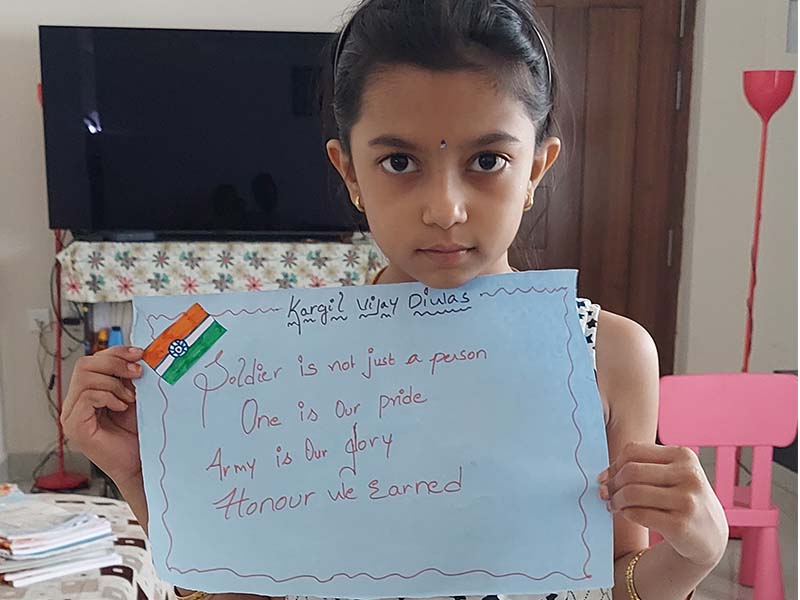 Kargil Vijay Diwas
Soldier is not just a person
One is Our pride
Army is Our glory
Honour we Earned